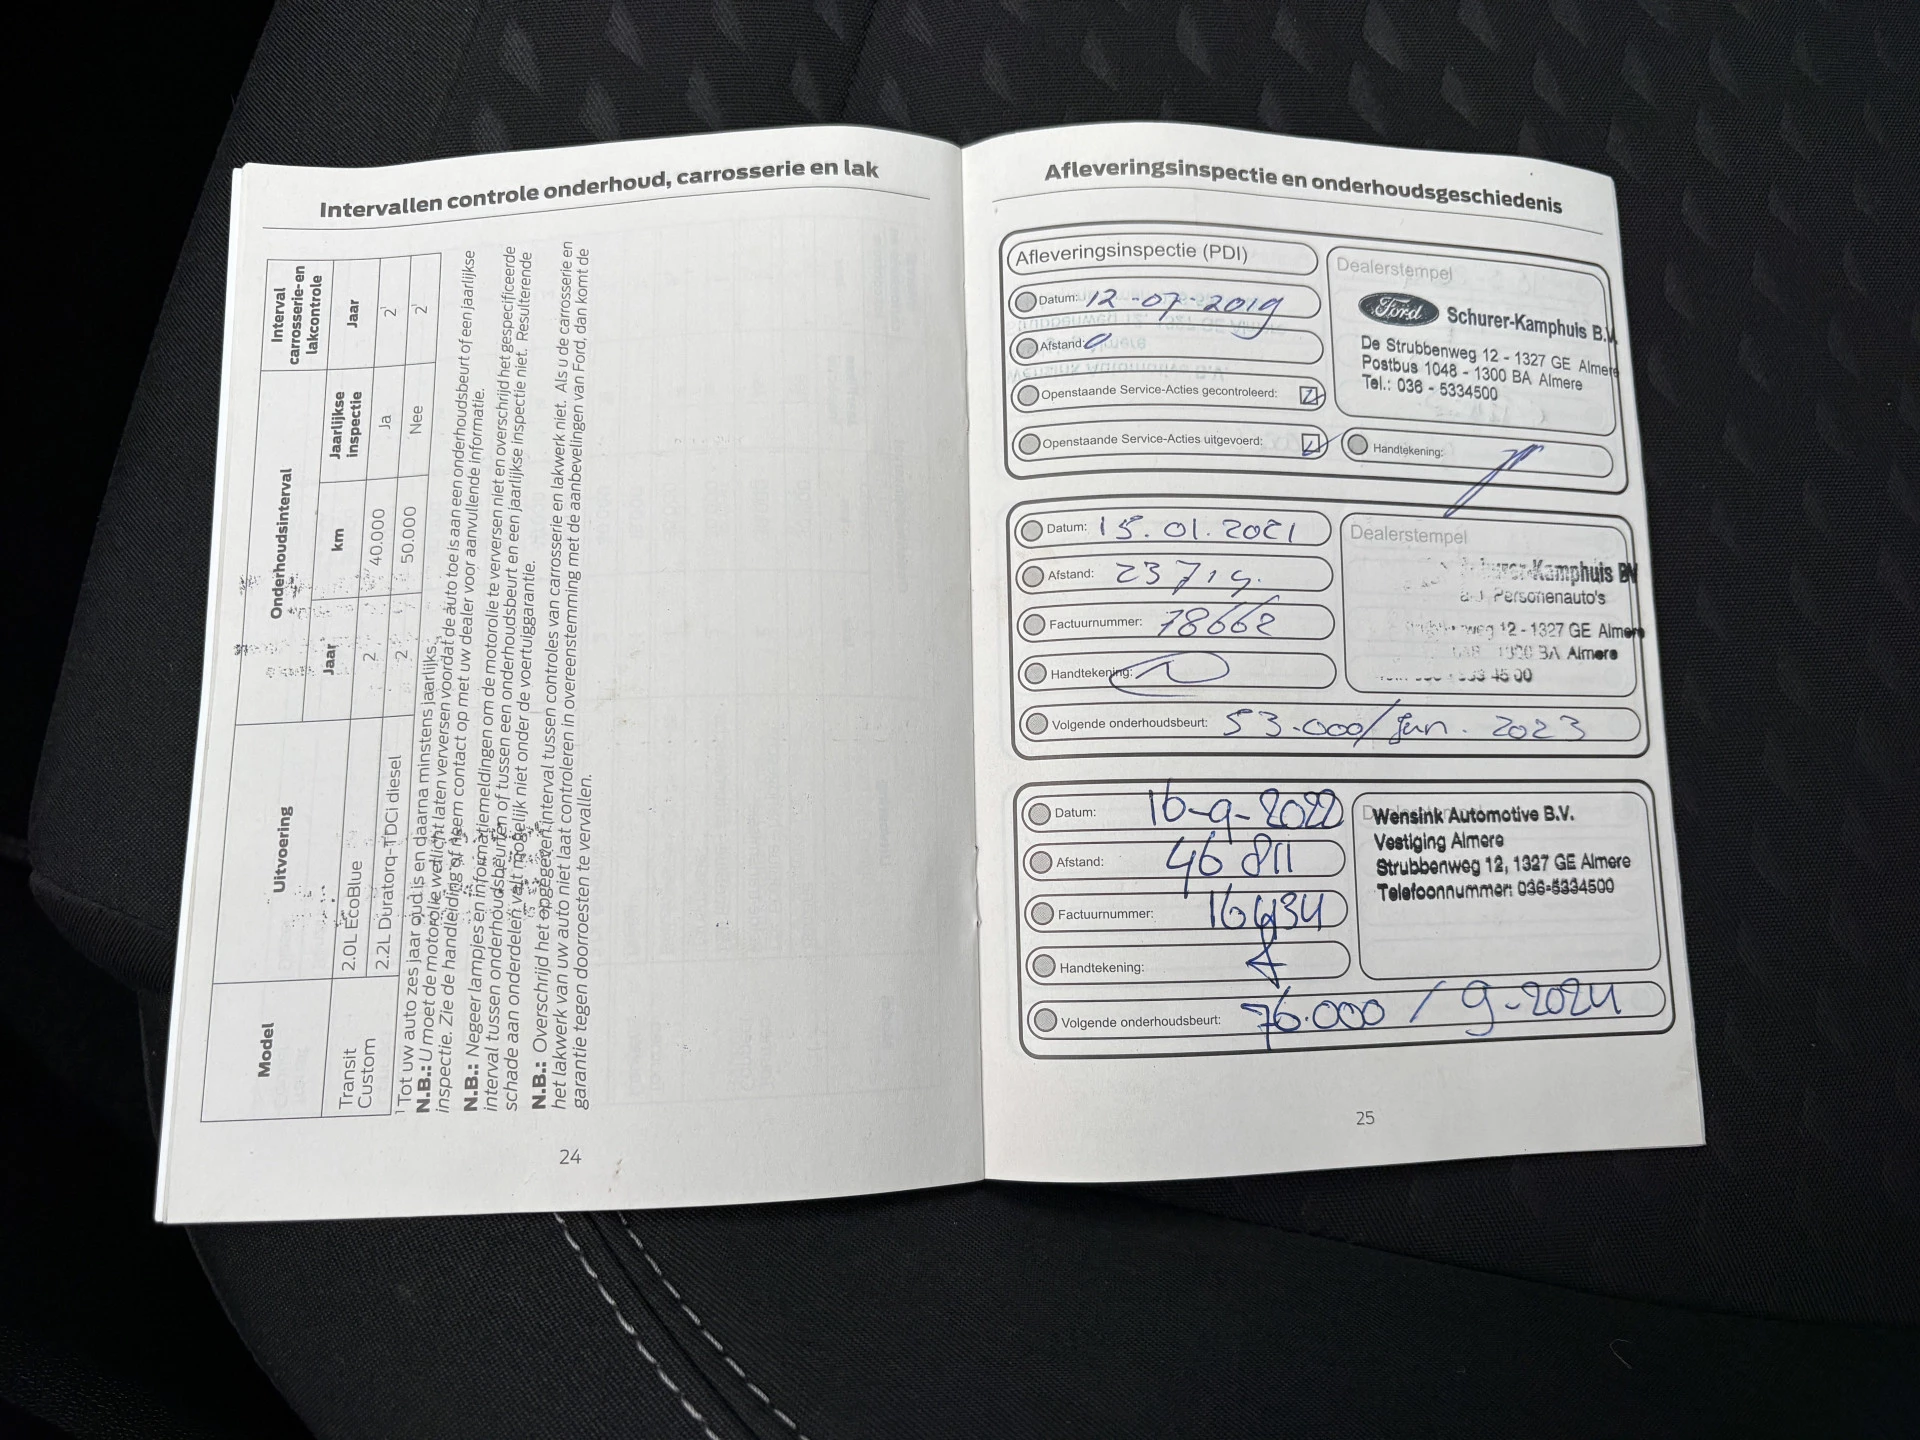 Intervallen controle onderhoud, carrosserie en lak
Model
Uitvoering
Onderhoudsinterval
Interval carrosserie-en lakcontrole
Jaar
km
Jaarlijkse inspectie
Jaar
Transit Custom
2.0L EcoBlue
2
40.000
Ja
2¹
2.2L Duratorq-TDCi diesel
2
50.000
Nee
2¹
¹ Tot uw auto zes jaar oud is en daarna minstens jaarlijks.
N.B.: U moet de motorolie wellicht laten verversen voordat de auto toe is aan een onderhoudsbeurt of een jaarlijkse
inspectie. Zie de handleiding of neem contact op met uw dealer voor aanvullende informatie.
N.B.: Negeer lampjes en informatiemeldingen om de motorolie te verversen niet en overschrijd het gespecificeerde
interval tussen onderhoudsbeurten of tussen een onderhoudsbeurt en een jaarlijkse inspectie niet. Resulterende
schade aan onderdelen valt mogelijk niet onder de voertuiggarantie.
N.B.: Overschrijd het opgegeven interval tussen controles van carrosserie en lakwerk niet. Als u de carrosserie en
het lakwerk van uw auto niet laat controleren in overeenstemming met de aanbevelingen van Ford, dan komt de
garantie tegen doorroesten te vervallen.
24
Afleveringsinspectie en onderhoudsgeschiedenis
Afleveringsinspectie (PDI)
Datum: 12-07-2019
Afstand: 0
Openstaande Service-Acties gecontroleerd:
Openstaande Service-Acties uitgevoerd:
Dealerstempel
Ford Schurer-Kamphuis B.V.
De Strubbenweg 12 - 1327 GE Almere
Postbus 1048 - 1300 BA Almere
Tel.: 036 - 5334500
Handtekening:
Datum: 15.01.2021
Afstand: 23719.
Factuurnummer: 78662
Handtekening:
Volgende onderhoudsbeurt: 53.000/Jan. 2023
Dealerstempel
Schurer-Kamphuis BV
Personenauto's
12 - 1327 GE Almere
1300 BA Almere
45 00
Datum: 16-9-2022
Afstand: 46811
Factuurnummer: 16434
Handtekening:
Volgende onderhoudsbeurt: 76.000 / 9-2024
Wensink Automotive B.V.
Vestiging Almere
Strubbenweg 12, 1327 GE Almere
Telefoonnummer: 036-5334500
25